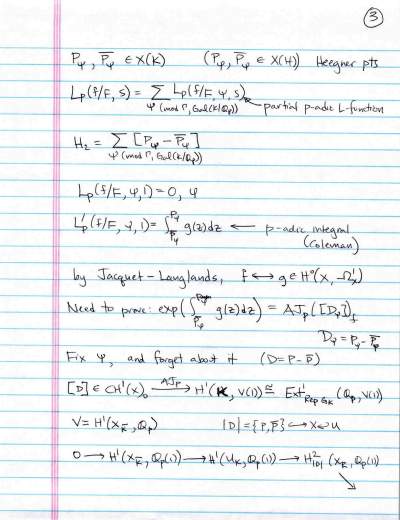 3
P_ψ, P̄_ψ ∈ X(K) (P_ψ, P̄_ψ ∈ X(H)) Heegner pts
L_p(f/F, s) = Σ_{ψ (mod Γ, Gal(K/Q_p))} L_p(f/F, ψ, s) ← partial p-adic L-function
H_2 = Σ_{ψ (mod Γ, Gal(K/Q_p))} [P_ψ - P̄_ψ]
L_p(f/F, ψ, 1) = 0, ψ
L'_p(f/F, ψ, 1) = ∫_{P̄_ψ}^{P_ψ} g(z)dz ← p-adic integral
(Coleman)
by Jacquet-Langlands, f ↔ g ∈ H⁰(X, Ω¹_X)
Need to prove: exp(∫_{P̄_ψ}^{P_ψ} g(z)dz) = AJ_p([D_ψ])_f
D_ψ = P_ψ - P̄_ψ
Fix ψ, and forget about it (D = P - P̄)
[D] ∈ CH¹(X)_0 —AJ_p→ H¹(K, V(1)) ≅ Ext¹_{Rep G_K}(Q_p, V(1))
V = H¹(X_K̄, Q_p) |D| = {P, P̄} ↪ X ↩ U
0 → H¹(X_K̄, Q_p(1)) → H¹(U_K̄, Q_p(1)) → H²_{|D|}(X_K̄, Q_p(1))